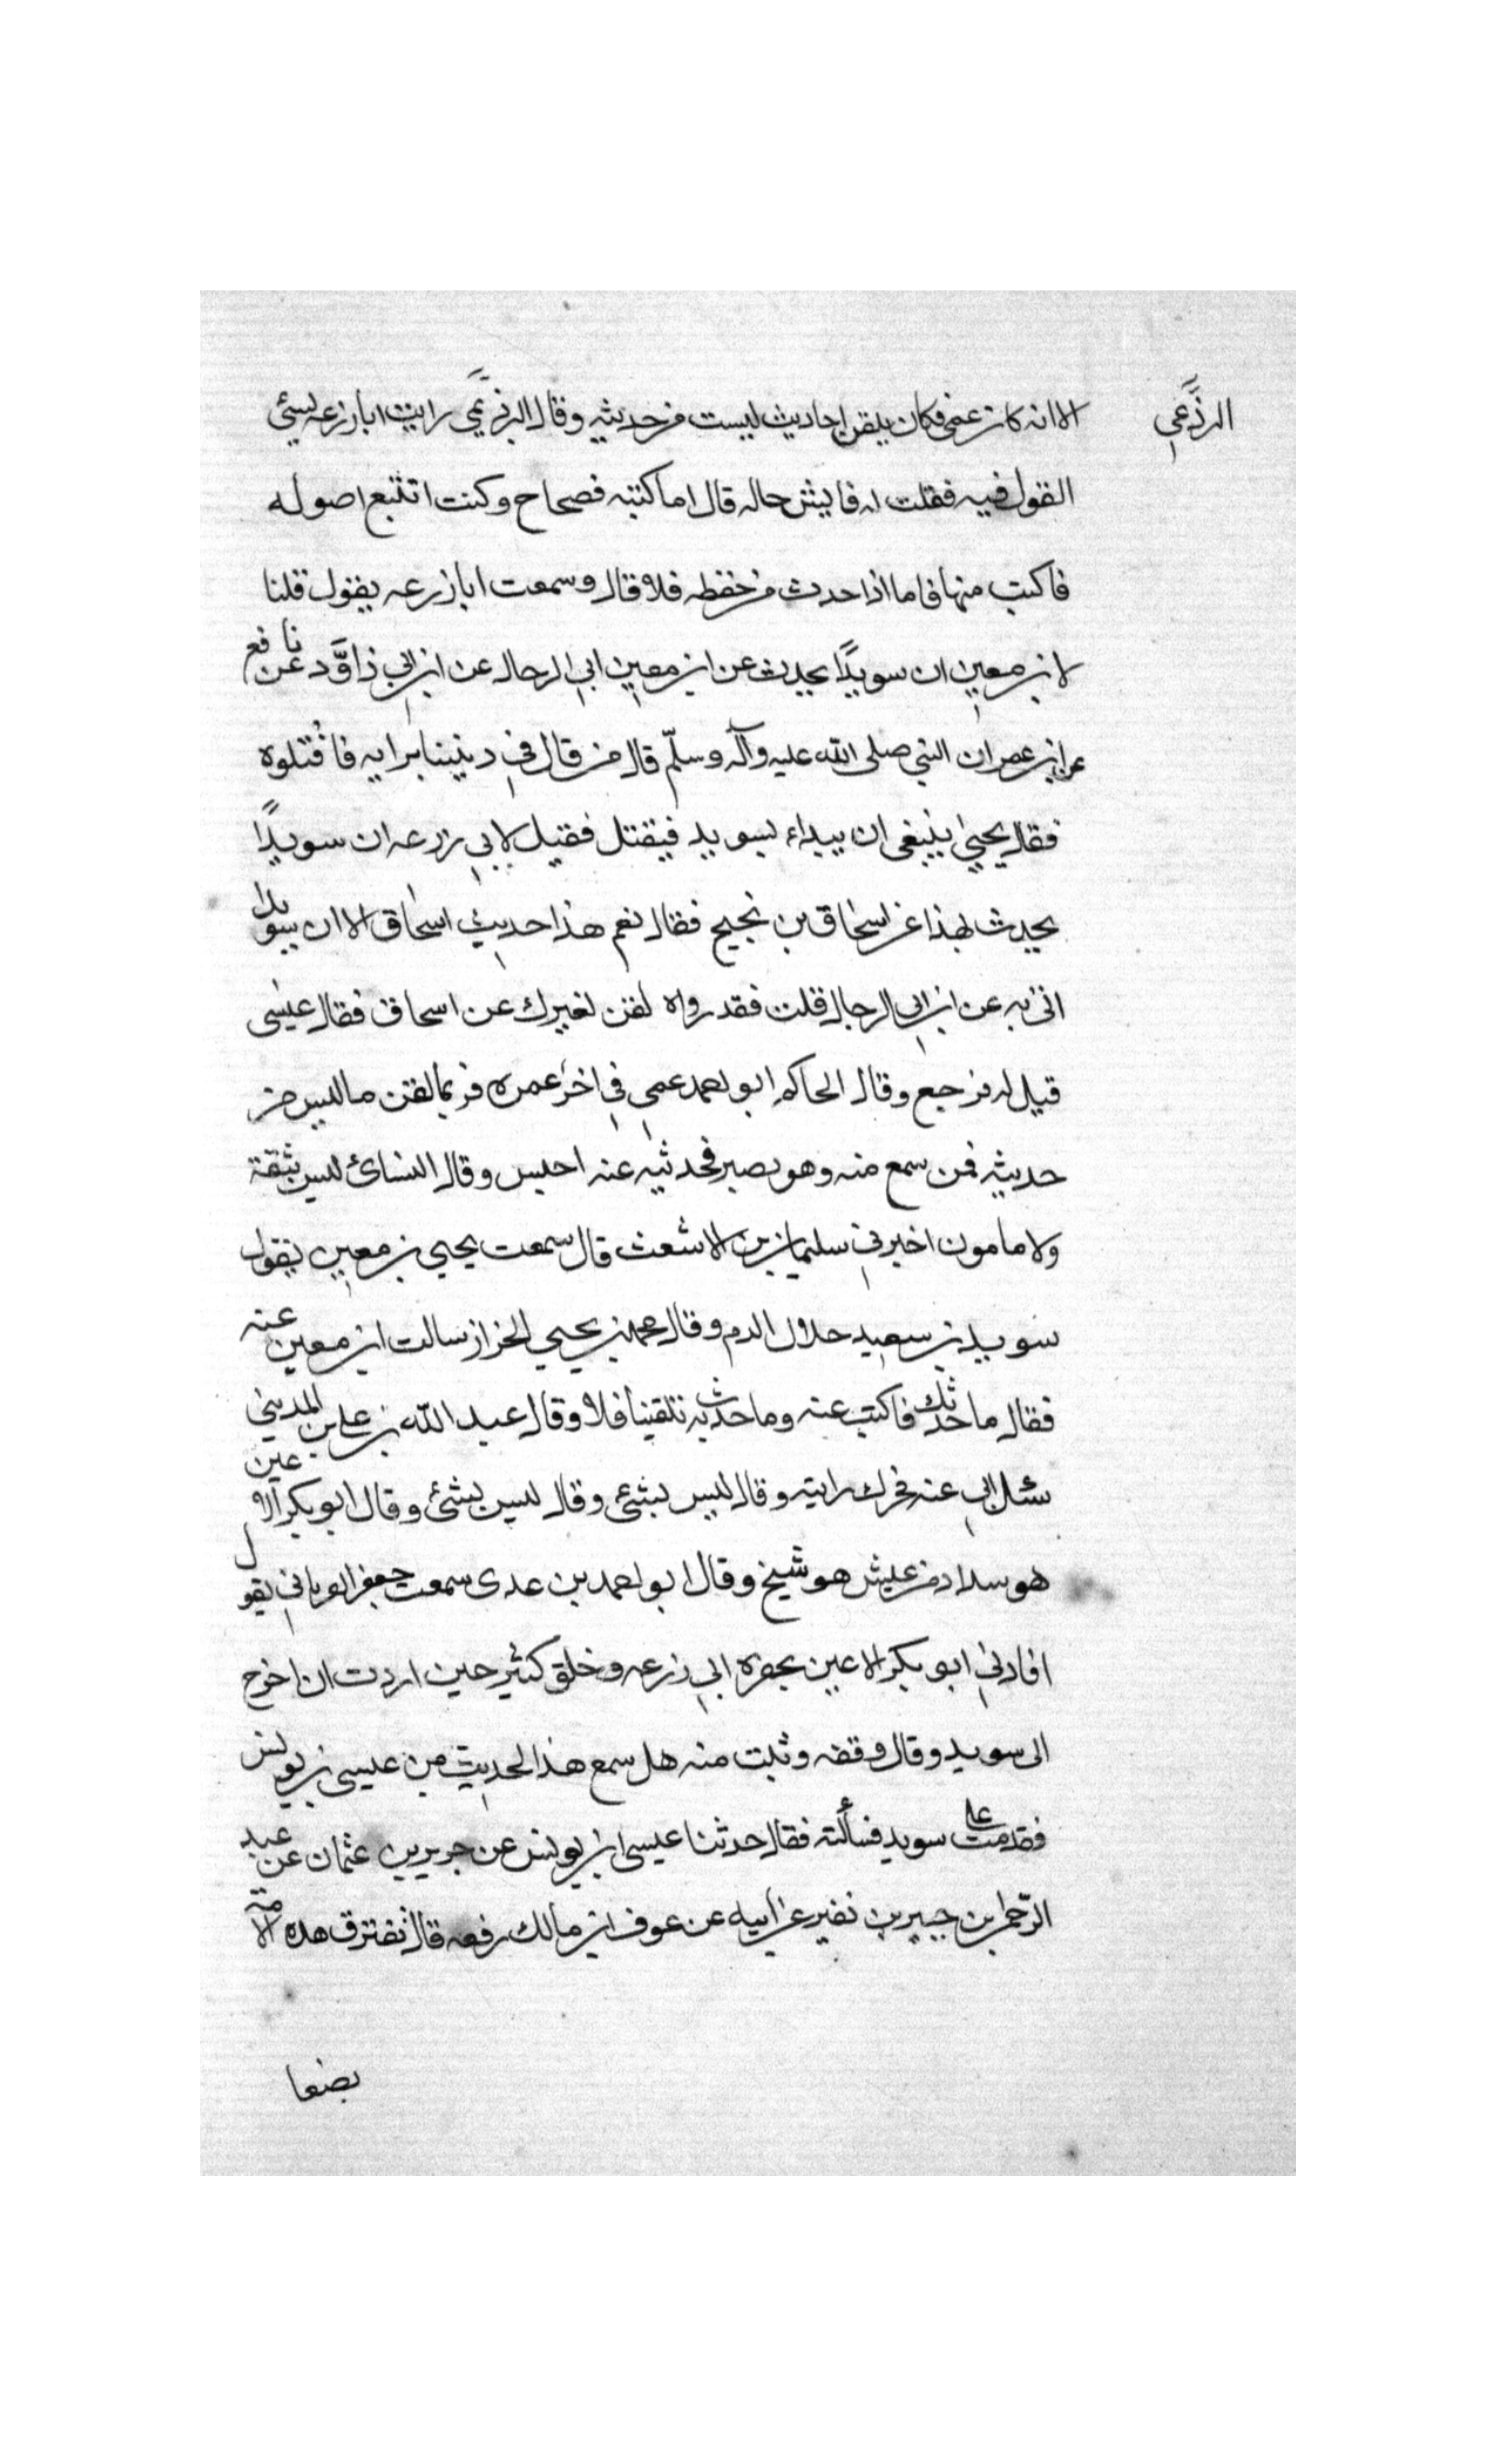 البرذعي
الا انه كان عمي فكان يلقن احاديث ليست من حديثه وقال البرذعي رايت ابا زرعه يسئ
القول فيه فقلت له فايش حاله قال اما كتبه فصحاح وكنت اتتبع اصوله
فاكتب منها فاما اذا حدث من حفظه فلا قال وسمعت ابا زرعه يقول قلنا
لابن معين ان سويدًا يحدث عن ابن معين ابي الرجال عن ابن ابي داوَّد عن نافع
عن ابن عمر ان النبي صلى الله عليه وآله وسلّم قال من قال في ديننا برايه فاقُتلوه
فقال يحيى ينبغي ان يبداء بسويد فيقتل فقيل لابي زرعه ان سويدًا
يحدث بهذا عن اسحاق بن نجيح فقال نعم هذا حديث اسحاق الا ان سويدا
اتى به عن ابن ابي الرجال قلت فقد رواه لقن لغيرك عن اسحاق فقال عيسى
قيل له فرجع وقال الحاكم ابو احمد عمي في اخر عمره فربما لقن ما ليس من
حديثه فمن سمع منه وهو بصير فحدثيه عنه احسن وقال النسائ ليس بثقة
ولا مامون اخبرني سليمان بن الاشعث قال سمعت يحيى بن معين يقول
سويد بن سعيد حلال الدم وقال محمد بن يحيى الخزاز سالت ابن معين عنه
فقال ما حدثك فاكتب عنه وما حدث به تلقينا فلا وقال عبد الله بن علي بن المديني
سئل ابي عنه فحرك رايته وقال ليس بشئ وقال ليس بشئ وقال ابو بكر الاعين
هو سداد من عيش هو شيخ وقال ابو احمد بن عدى سمعت جعفر الفريابي يقول
افادني ابو بكر الاعين بحضره ابي زرعه وخلق كثير حين اردت ان اخرج
الى سويد وقال وقفه وثبت منه هل سمع هذا الحديث من عيسى بن يونس
فقدمت على سويد فسألته فقال حدثنا عيسى ابن يونس عن جرير بن عثمان عن عبد
الرّحمن بن جبير بن نفير عن ابيه عن عوف ابن مالك رفعه قال تفترق هذه الامة
بضعا